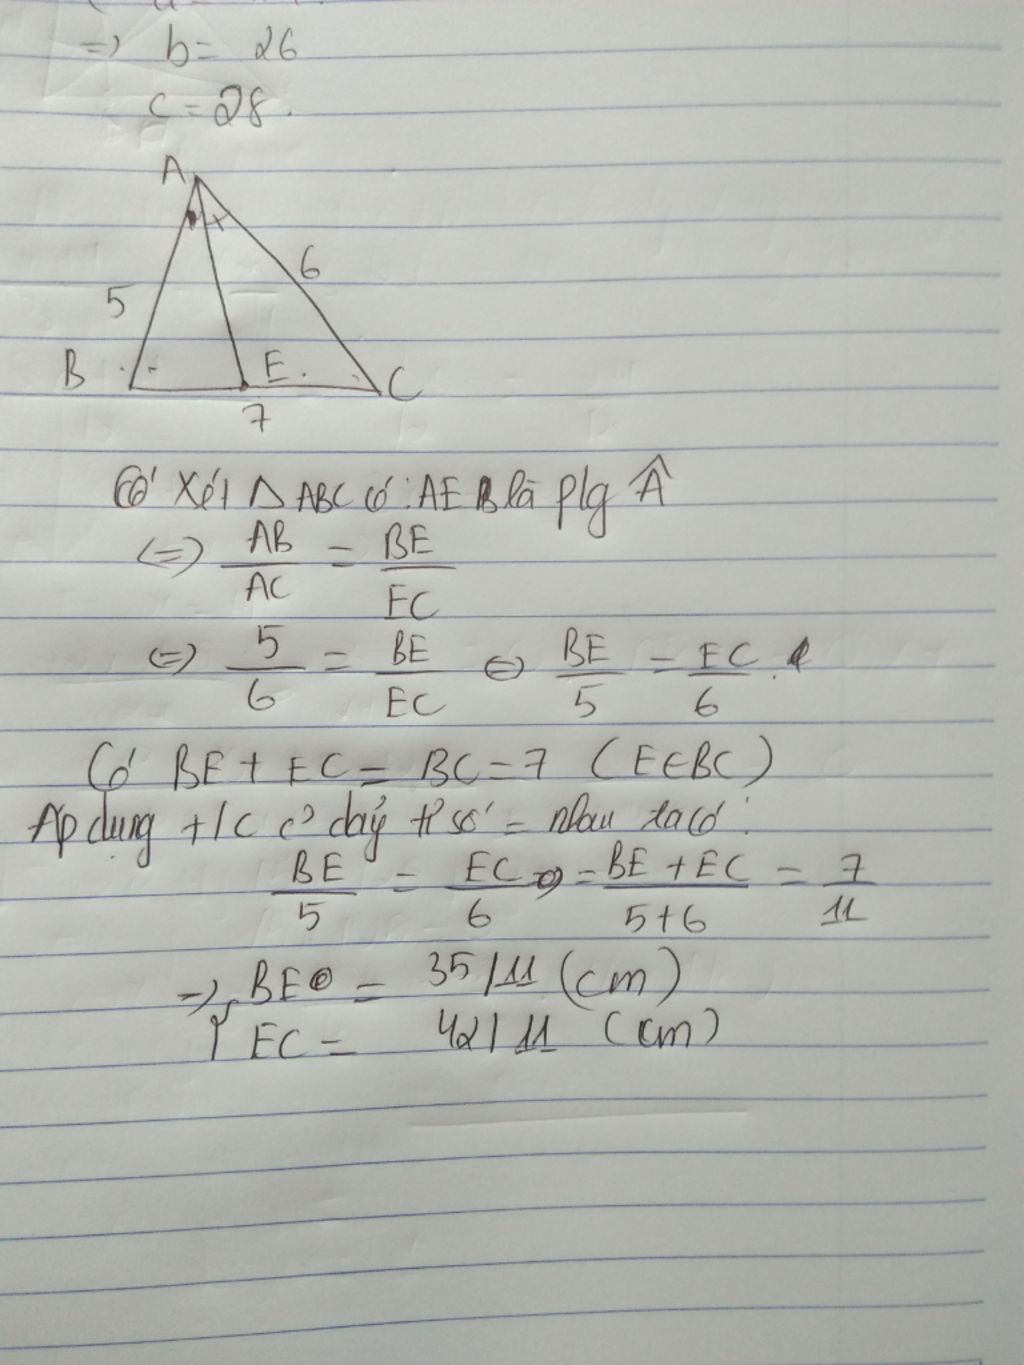 => b = 26
c = 28.
A
x
5
6
B
E.
C
7
Có Xét △ ABC có: AE là plg Â
<=> AB/AC = BE/EC
<=> 5/6 = BE/EC <=> BE/5 = EC/6
Có BE + EC = BC = 7 (E∈BC)
Áp dụng t/c dãy tỉ số = nhau ta có:
BE/5 = EC/6 = BE + EC/5+6 = 7/11
=> { BE = 35/11 (cm)
EC = 42/11 (cm)